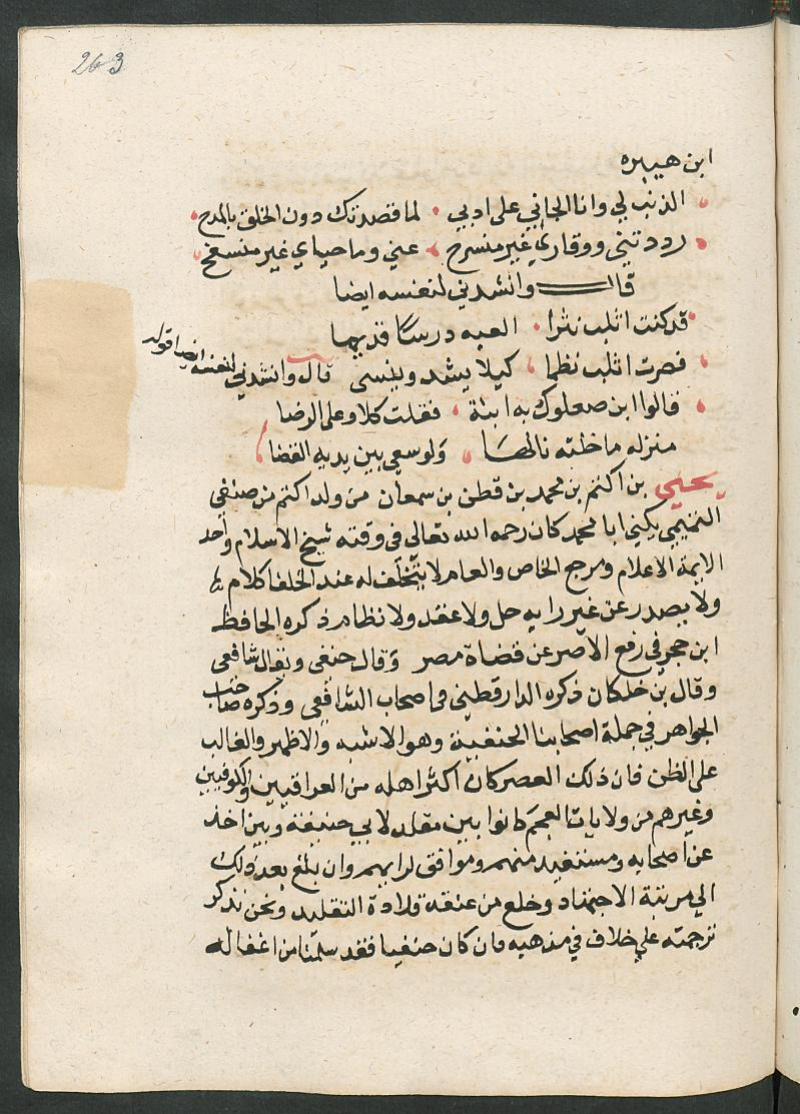 263
ابن هبيره
الذنب لي وانا الجاني على ادبي . لما قصدتك دون الخلق بالمدح
رددتني ووقاري غير منسرح . عني وما حياي غير منسفح
قال وانشدني لنفسه ايضا
قد كنت اثلب نثرا . العبه درسا قديما
فصرت اثلب نظما . كيلا يشد وينسى قال وانشدني لنفسه ايضا قوله
قالوا ابن صعلوك به ابنة . فقلت كلا وعلى الرضا
منزله ما خلته نالها . ولو سعى بين يديه القضا
يحيى بن اكثم بن محمد بن قطن بن سمعان من ولد اكثم من صيفي
التميمي يكنى ابا محمد كان رحمه الله تعالى في وقته شيخ الاسلام واحد
الايمة الاعلام ومرجع الخاص والعام لا يتخلف له عند الخلفا كلام
ولا يصدر عن غير رايه حل ولا عقد ولا نظام ذكره الحافظ
ابن حجر في رفع الاصر عن قضاة مصر وقال حنفي ويقال شافعي
وقال بن خلكان ذكره الدارقطني في اصحاب الشافعي وذكره صاحب
الجواهر في جملة اصحابنا الحنفية وهو الاشبه والاظهر والغالب
على الظن فان ذلك العصر كان اكثر اهله من العراقيين والكوفيين
وغيرهم من ولايات العجم كانوا بين مقلد لابي حنيفة وبين اخذ
عن اصحابه ومستفيد منهم وموافق لرايهم وان بلغ بعد ذلك
الى مرتبة الاجتهاد وخلع من عنقه قلادة التقليد ونحن نذكر
ترجمته على خلاف في مذهبه فان كان حنفيا فقد سلمنا من اغفاله